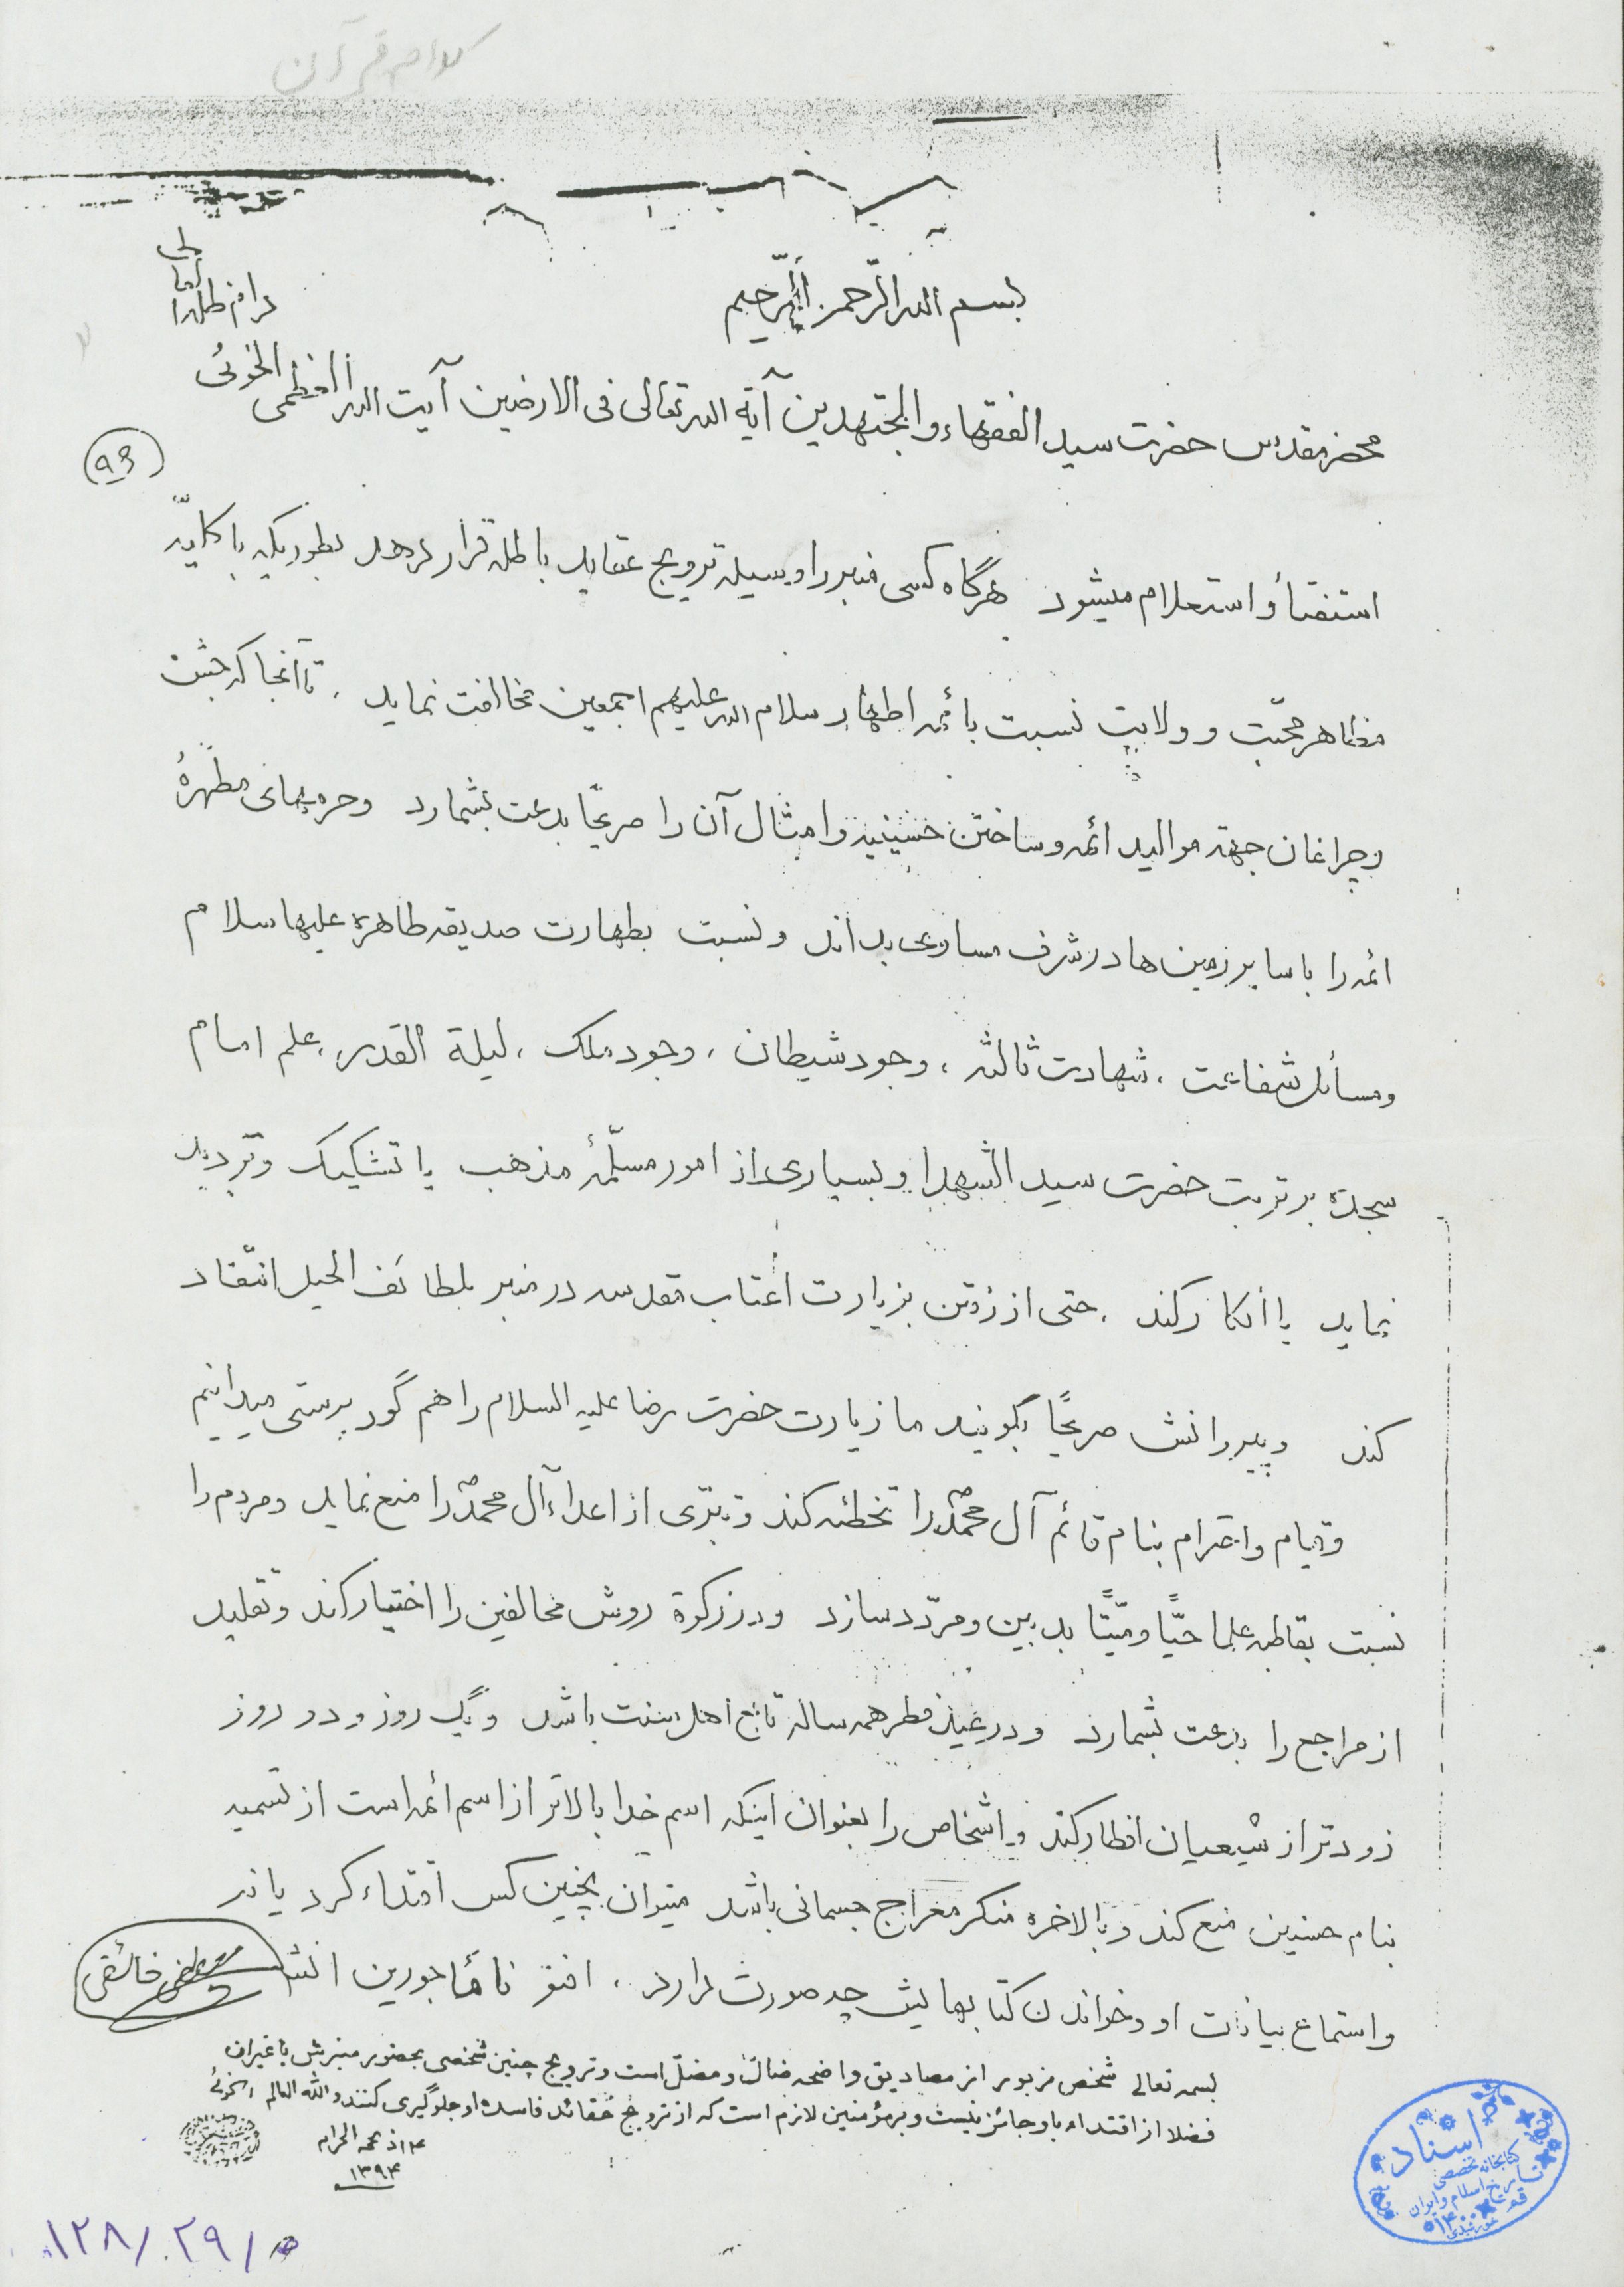 کلام قرآن
بسم الله الرّحمن الرّحیم
دام ظله
محضر مقدس حضرت سید الفقهاء والمجتهدین آیة الله تعالی فی الارضین آیت الله العظمی الخوئی
استفتأ و استعلام میشود هرگاه کسی منبر را وسیله ترویج عقاید باطله قرار دهد بطوریکه با کلیّه
مظاهر محبّت و ولایت نسبت بائمه اطهار سلام الله علیهم اجمعین مخالفت نماید، تا آنجا که جشن
و چراغان جهة موالید ائمه و ساختن حسینیه و امثال آن را صریحًا بدعت بشمارد و حرمهای مطهرهٔ
ائمه را با سایر زمین ها در شرف مساوی بداند و نسبت بطهارت صدیقه طاهره علیها سلام
و مسأئل شفاعت، شهادت ثالثه، وجود شیطان، وجود ملک، لیلة القدر، علم امام
سجده بر تربت حضرت سید الشهدا و بسیاری از امور مسلّمهٔ مذهب یا تشکیک و تردید
نماید یا انکار کند، حتی از رفتن بزیارت اعتاب مقدسه در منبر بلطائف الحیل انتقاد
کند و پیروانش صریحًا بگویند ما زیارت حضرت رضا علیه السلام را هم گور پرستی میدانیم
و قیام و احترام بنام قائم آل محمد را تخطئه کند و تبرّی از اعداء آل محمد را منع نماید و مردم را
نسبت بقاطبه علما حیًّا و میّتًا بدبین و مردّد سازد و در زکوة روش مخالفین را اختیار کند و تقلید
از مراجع را بدعت بشمارد و در عید فطر همه ساله تابع اهل سنت باشد و یک روز و دو روز
زودتر از شیعیان افطار کند و اشخاص را بعنوان اینکه اسم خدا بالاتر از اسم ائمه است از تسمیه
بنام حسنین منع کند و بالاخره منکر معراج جسمانی باشد میتوان بچنین کس اقتداء کرد یا نه
و استماع بیانات او و خواندن کتابهایش چه صورت دارد، افتو نا مأجورین انشـ
بسمه تعالی شخص مزبور از مصادیق واضحه ضالّ و مضلّ است و ترویج چنین شخصی بحضور منبرش یا غیر آن
فضلا از اقتداء باو جائز نیست و بر مؤمنین لازم است که از ترویج عقائد فاسده او جلوگیری کنند والله العالم الخوئی
۱۴ ذیحجه الحرام
۱۳۹۴
اسناد
کتابخانه تخصصی
تاریخ اسلام و ایران
قم
۱۲۸/۲۹/